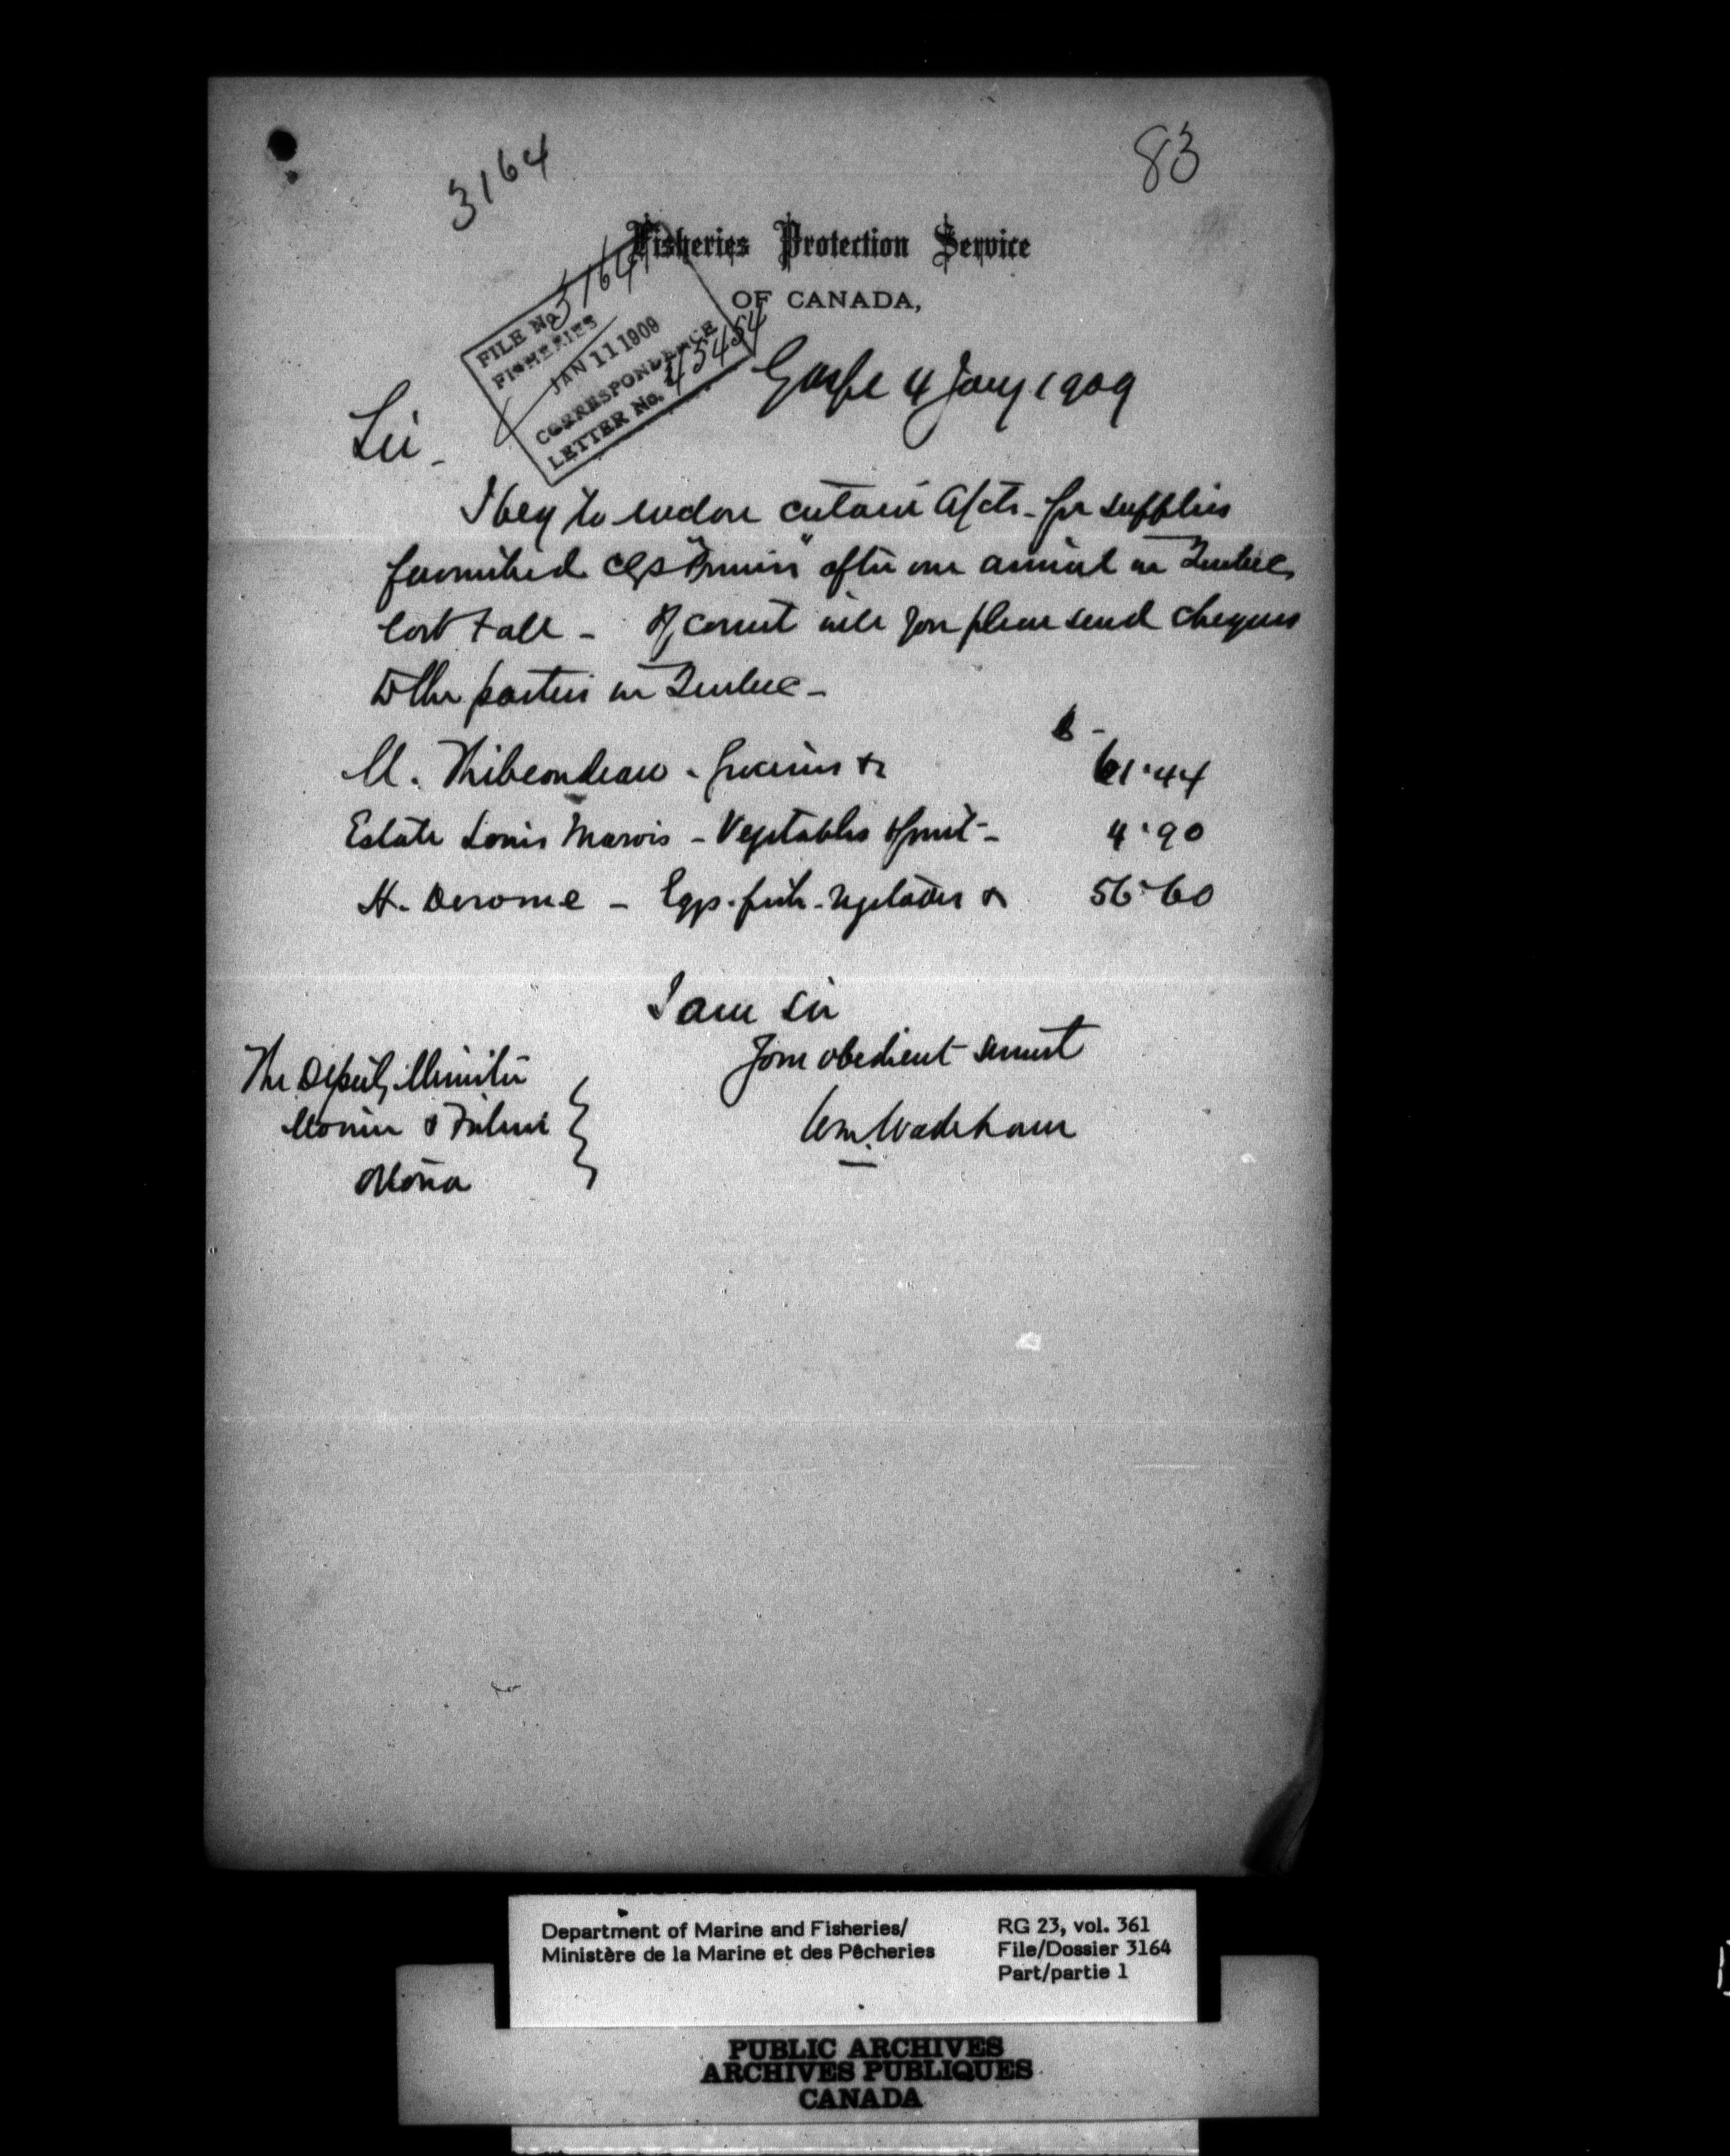 3164
83
Fisheries Protection Service
OF CANADA,
FILE No. 3164
FISHERIES
JAN 11 1909
CORRESPONDENCE
LETTER No. 45454
Gaspe 4 Jany 1909
Sir -
I beg to enclose certain a/cts - for supplies
furnished CGS "Princess" after our arrival in Quebec
last Fall - If correct will you please send cheques
to the parties in Quebec -
$ -
M. Thibeaudeau - Groceries &c 61.44
Estate Louis Marois - Vegetables & fruit - 4.90
H. Derome - Eggs - fish - vegetables &c 56.60
I am Sir
Your obedient servant
Wm. Wakeham
The Deputy Minister
Marine & Fisheries
Ottawa
Department of Marine and Fisheries/
Ministère de la Marine et des Pêcheries
RG 23, vol. 361
File/Dossier 3164
Part/partie 1
PUBLIC ARCHIVES
ARCHIVES PUBLIQUES
CANADA